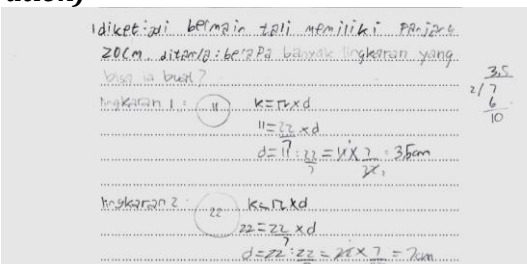 1 diket: adi bermain tali memiliki panjang
20cm ditanya: berapa banyak lingkaran yang
bisa ia buat?
lingkaran 1: 11 k=πxd
11=22/7 xd
d=11:22/7=11x7/22=3,5cm
3,5
2/7
6
10
lingkaran 2 22 k=πxd
22=22/7 xd
d=22:22/7=22x7/22=7cm